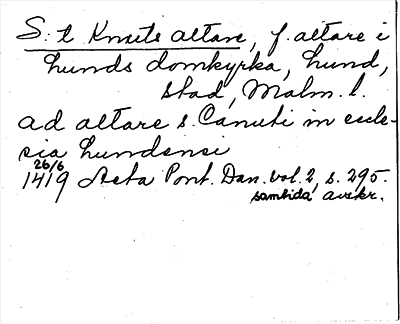 S:t Knuts altare, f. altare i
Lunds domkyrka, Lund,
stad, Malm. l.
ad altare s. Canuti in eccle-
sia Lundensi
26/6
1419 Acta Pont. Dan. vol. 2, s. 295.
samtida avskr.